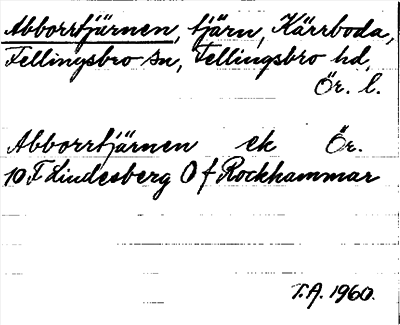 Abborrtjärnen, tjärn, Kärrboda,
Fellingsbro sn, Fellingsbro hd,
Ör. l.
Abborrtjärnen ek Ör.
10 F Lindesberg O f Rockhammar
T.A. 1960.